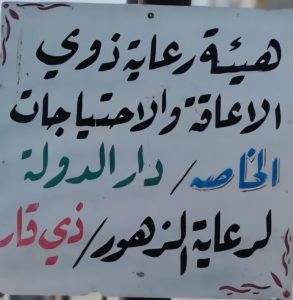 هيئة رعاية ذوي
الاعاقة والاحتياجات
الخاصه / دار الدولة
لرعاية الزهور / ذي قار